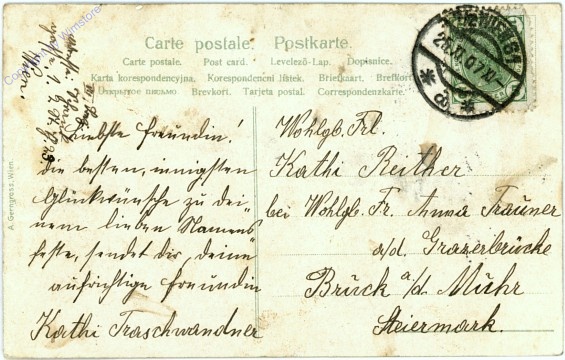 Carte postale. Postkarte.
Carte postale. Post card. Levelező-Lap. Dopisnice.
Karta korespondencyjna. Korespondenční lístek. Briefkaart. Brefkort.
Открытое письмо. Brevkort. Tarjeta postal. Correspondenzkarte.
Liebste Freundin!
die besten, innigsten
Glückwünsche zu dei-
nem lieben Namens
feste, sendet dir, deine
aufrichtige Freundin
Kathi Traschwandner
Wohlgb. Frl.
Kathi Reither
bei Wohlgb. Fr. Anna Trauner
a/d. Grazerbrücke
Bruck a/d. Muhr
Steiermark.
A. Gerngross, Wien.